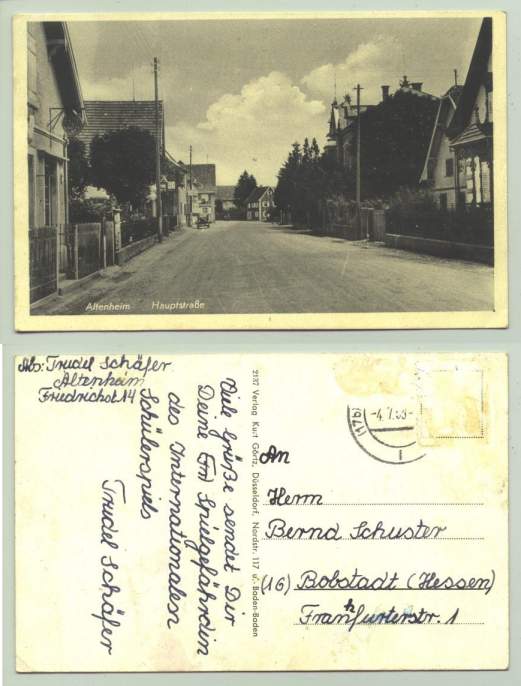 Altenheim Hauptstraße
Abs: Trudel Schäfer
Altenheim
Friedrichst. 14
Viele Grüße sendet Dir
Deine Spielgefährdin
des Internationalen
Schülerspiels
Trudel Schäfer
2137 Verlag Kurt Görtz, Düsseldorf, Nordstr. 117 u. Baden-Baden
(17b)
-4.7.53-
An
Herrn
Bernd Schuster
(16) Bobstadt (Hessen)
Frankfurterstr. 1